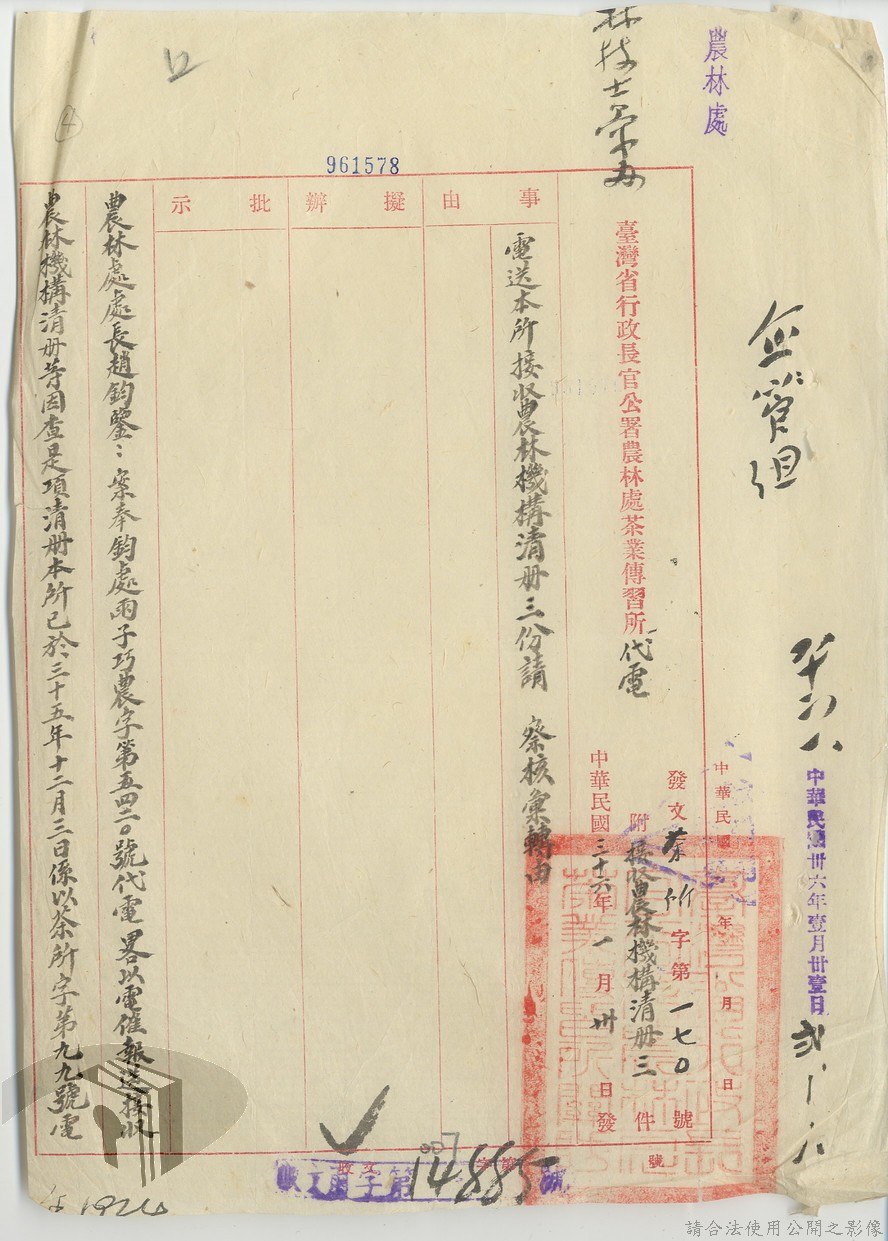 農林處
企管組
中華民國卅六年壹月卅壹日
961578
中華民國 年 月 日
號
發文茶所字第一七〇號
附接收農林機構清册三件
中華民國三十六年一月卅日發
臺灣省行政長官公署農林處茶業傳習所代電
事由
電送本所接收農林機構清册三份請 察核彙轉由
擬辦
批示
農林處處長趙鈞鑒:案奉鈞處丙子巧農字第五四二〇號代電畧以電催報送接收
農林機構清册等因查是項清册本所已於三十五年十二月三日係以茶所字第九九號電
收文 字第14885號
請合法使用公開之影像